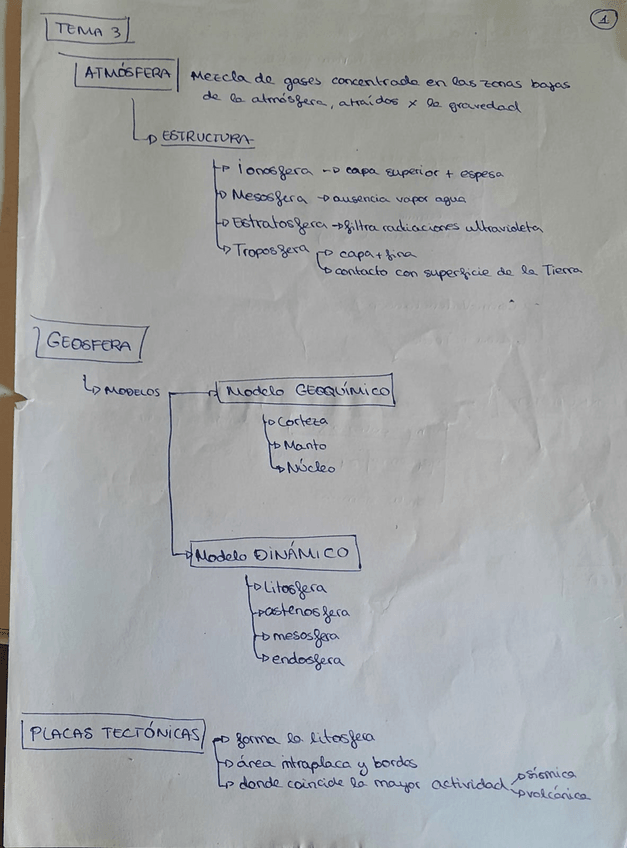 1
TEMA 3
ATMÓSFERA Mezcla de gases concentrada en las zonas bajas
de la atmósfera, atraídos x la gravedad
ESTRUCTURA
Ionosfera → capa superior + espesa
Mesosfera → ausencia vapor agua
Estratosfera → filtra radiaciones ultravioleta
Troposfera → capa + fina
→ contacto con superficie de la Tierra
GEOSFERA
MODELOS
Modelo GEOQUÍMICO
Corteza
Manto
Núcleo
Modelo DINÁMICO
Litosfera
astenosfera
mesosfera
endosfera
PLACAS TECTÓNICAS → forma la litosfera
→ área intraplaca y bordes
→ donde coincide la mayor actividad → sísmica
→ volcánica